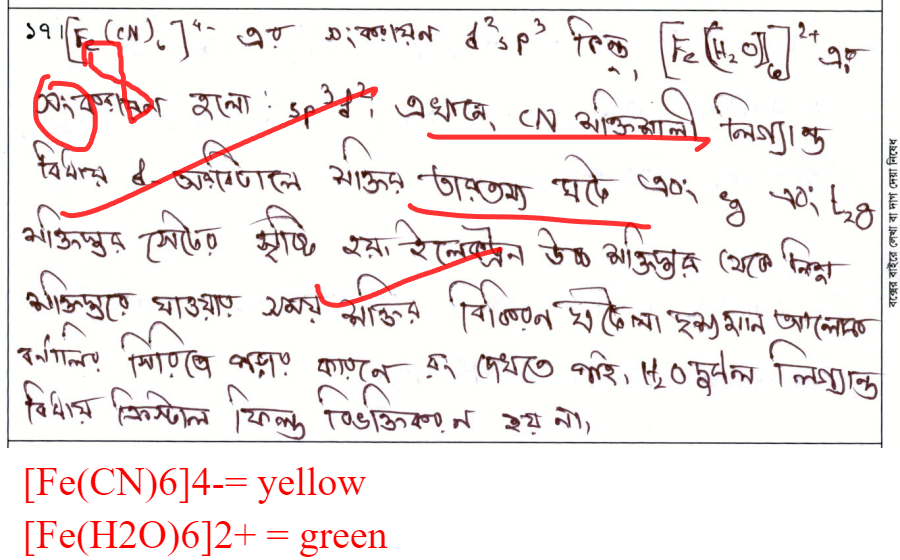 ১৭। [Fe(CN)₆]⁴⁻ এর সংকরায়ন d²sp³ কিন্তু [Fe(H₂O)₆]²⁺ এর
সংকরায়ন হলো: sp³d², এখানে, CN শক্তিশালী লিগ্যান্ড
বিধায় d অরবিটালে শক্তির তারতম্য ঘটে এবং eg এবং t₂g
শক্তিস্তর সেটের সৃষ্টি হয়, ইলেকট্রন উচ্চ শক্তিস্তর থেকে নিম্ন
শক্তিস্তরে যাওয়ার সময় শক্তির বিকিরণ ঘটে যা দৃশ্যমান আলোক
বর্ণালির সিরিজে পড়ার কারণে রং দেখতে পাই, H₂O দুর্বল লিগ্যান্ড
বিধায় ক্রিস্টাল ফিল্ড বিভক্তিকরণ হয় না,
বক্সের বাইরে লেখা বা দাগ দেয়া নিষেধ
[Fe(CN)6]4-= yellow
[Fe(H2O)6]2+ = green